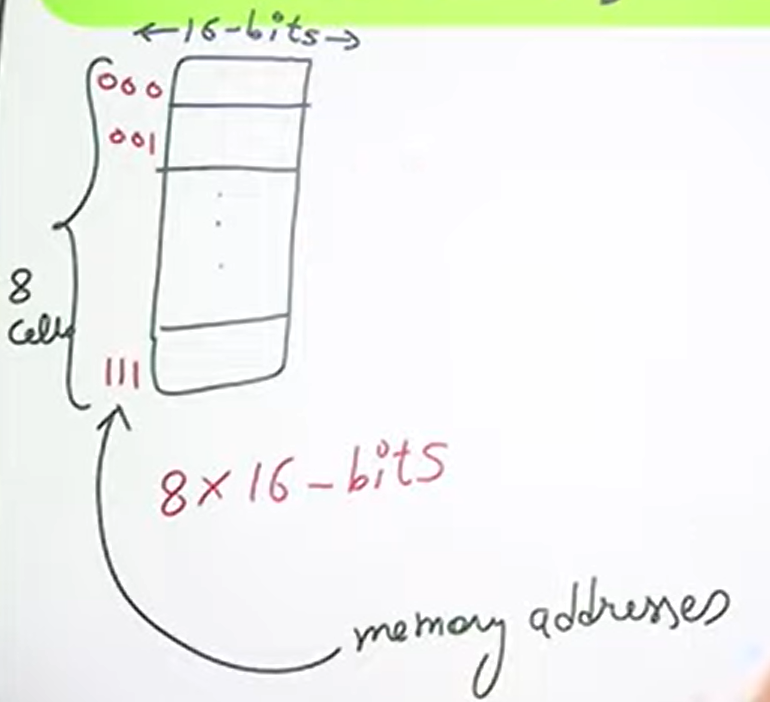 ←16-bits→
000
001
8
Cells
111
8×16-bits
memory addresses